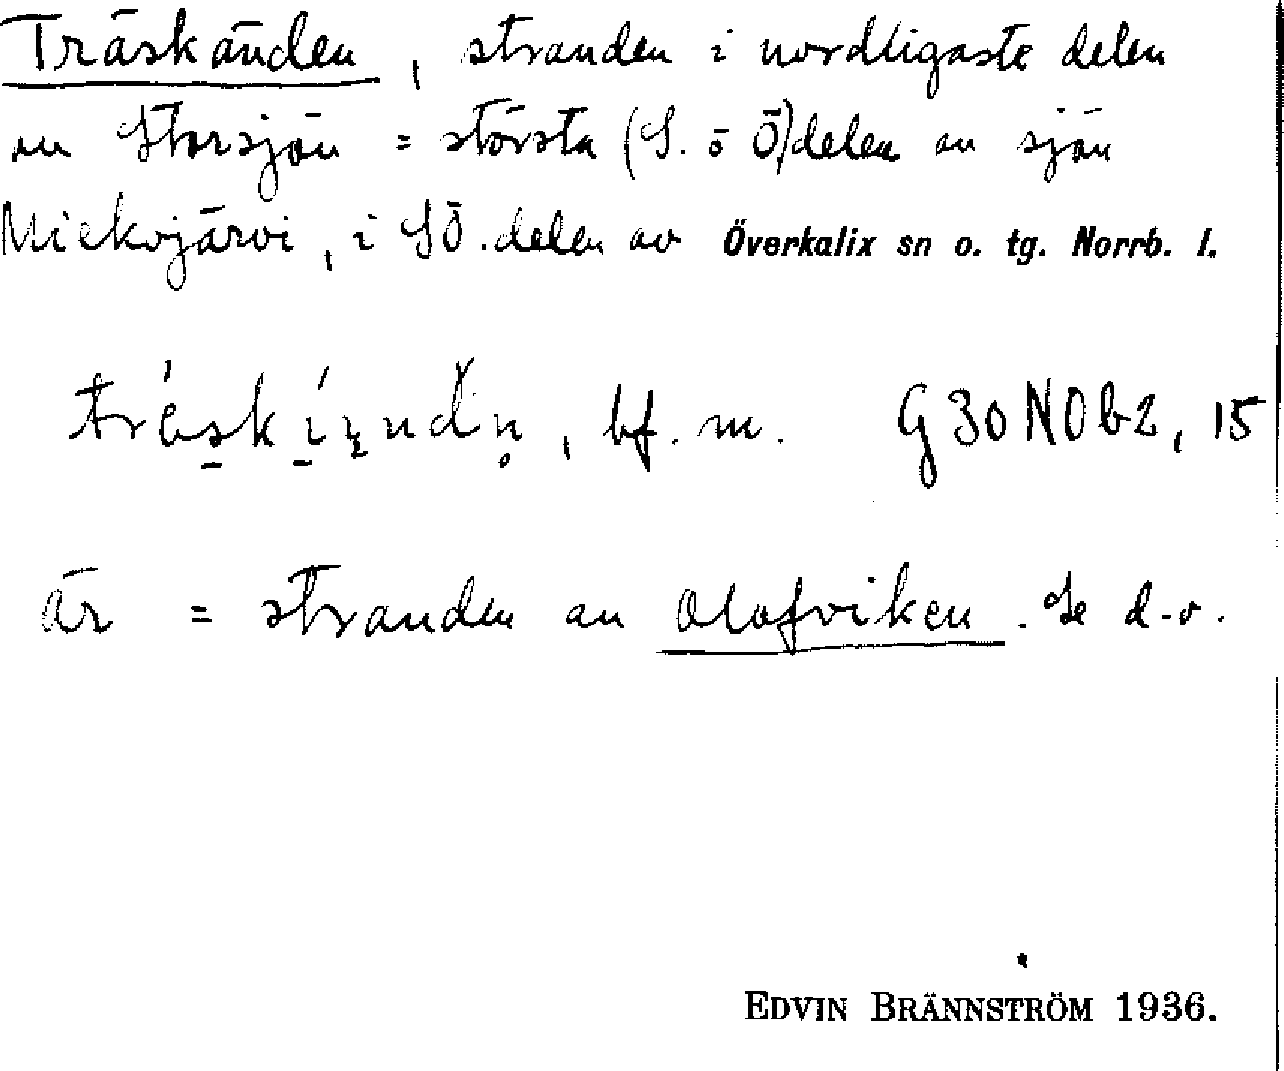 Träskänden, stranden i nordligaste delen
av Storsjön = största (S. o Ö) delen av sjön
Miekojärvi, i SÖ. delen av Överkalix sn o. tg. Norrb. l.
bf. m. G30NOb2, 15
är = stranden av Olofviken. Se d.o.
EDVIN BRÄNNSTRÖM 1936.